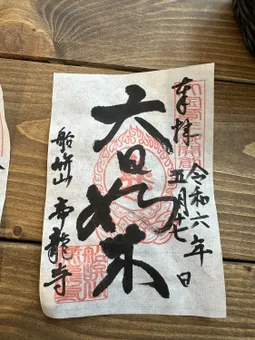 奉拝
令和六年
五月十七日
大日如来
船竹山 帝龍寺